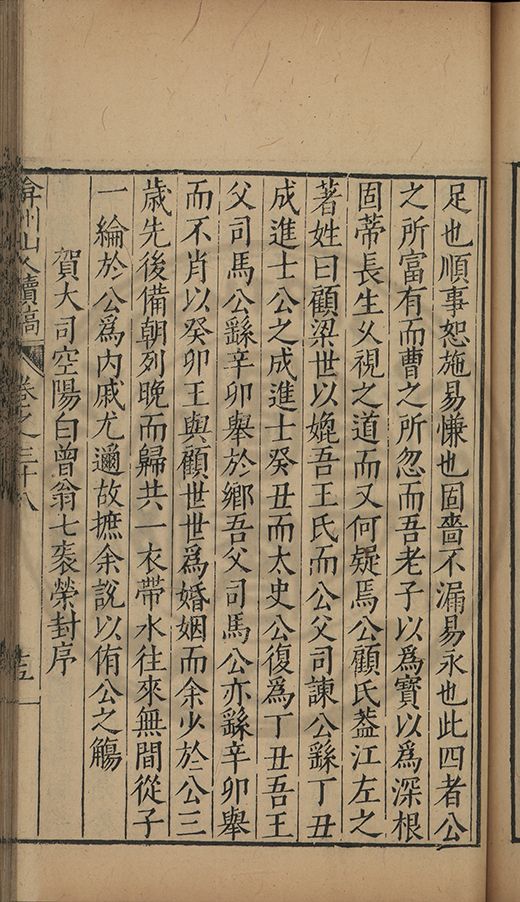 足也順事恕施易慊也固嗇不漏易永也此四者公
之所富有而曹之所忽而吾老子以為寳以為深根
固蒂長生乆視之道而又何疑焉公顧氏葢江左之
著姓曰顧梁世以媲吾王氏而公父司諫公繇丁丑
成進士公之成進士癸丑而太史公復為丁丑吾王
父司馬公繇辛卯舉於鄉吾父司馬公亦繇辛卯舉
而不肖以癸卯王與顧世世為婚姻而余少於公三
歲先後備朝列晚而歸共一衣帶水往來無間從子
一綸於公為內戚尤邇故摭余說以侑公之觴
賀大司空陽白曾翁七袠榮封序
弇州山人續稿
卷之三十八